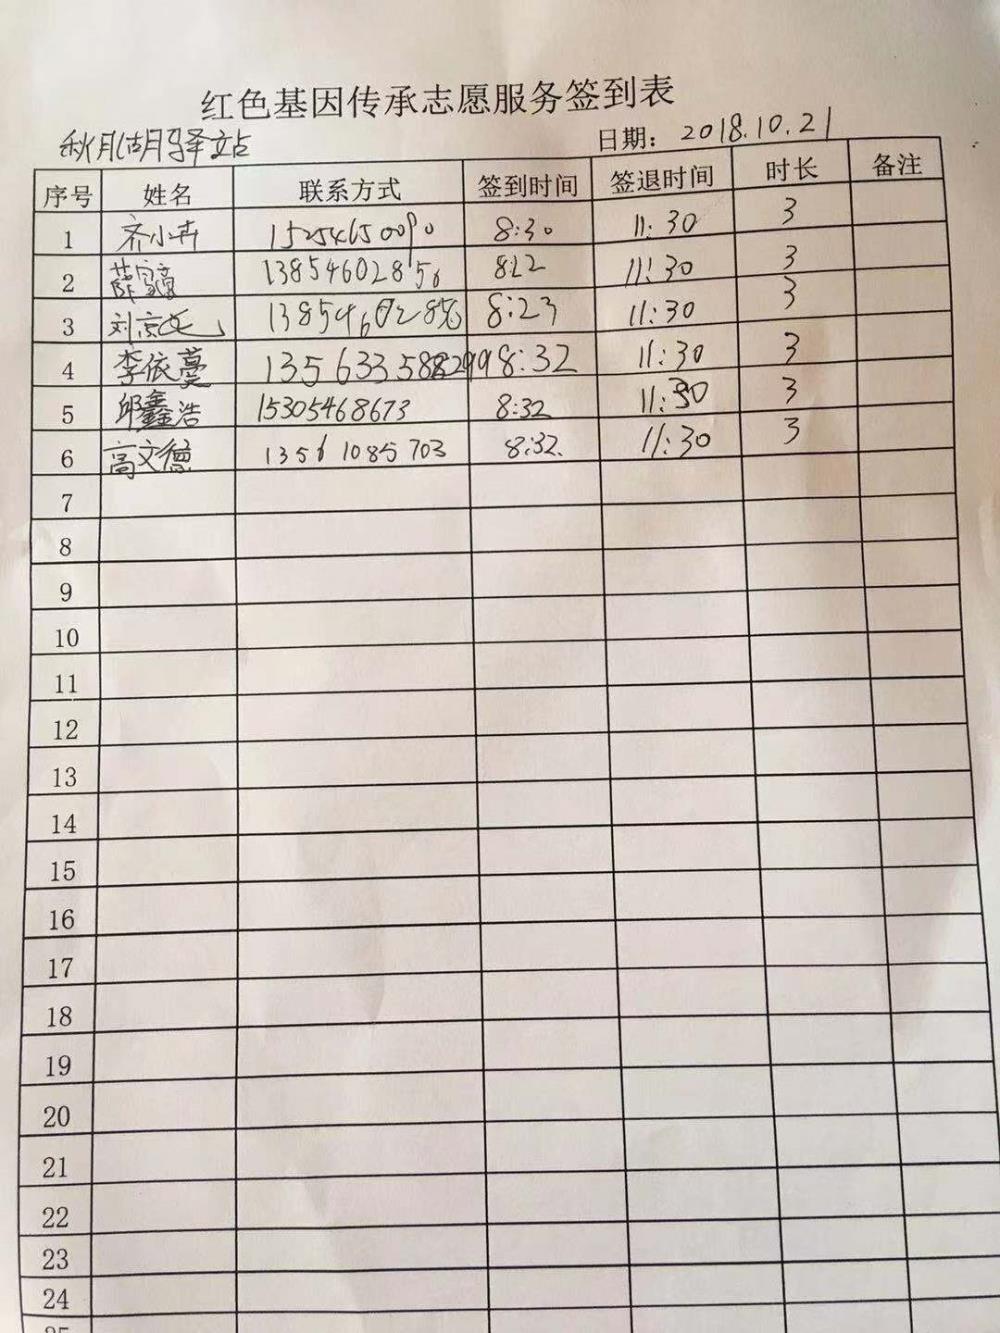 红色基因传承志愿服务签到表
秋月湖驿站 日期: 2018.10.21
序号 姓名 联系方式 签到时间 签退时间 时长 备注
1 齐小卉 15254650090 8:30 11:30 3
2 薛 13854602856 8:12 11:30 3
3 刘京 13854602856 8:23 11:30 3
4 李依蔓 8:32 11:30 3
5 邱鑫浩 15305468673 8:32 11:30 3
6 高文德 13561085703 8:32. 11:30 3
7
8
9
10
11
12
13
14
15
16
17
18
19
20
21
22
23
24
25